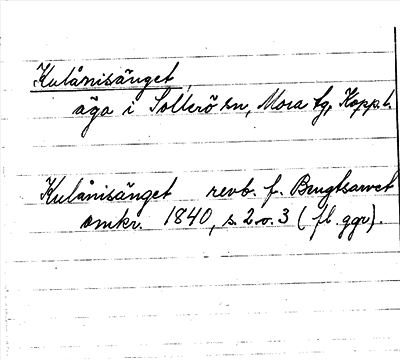 Kulånisänget,
äga i Sollerö sn, Mora tg, Koppl.
Kulånisänget revb. f. Bengtsarvet
omkr. 1840, s. 2 o. 3 (fl. ggr).